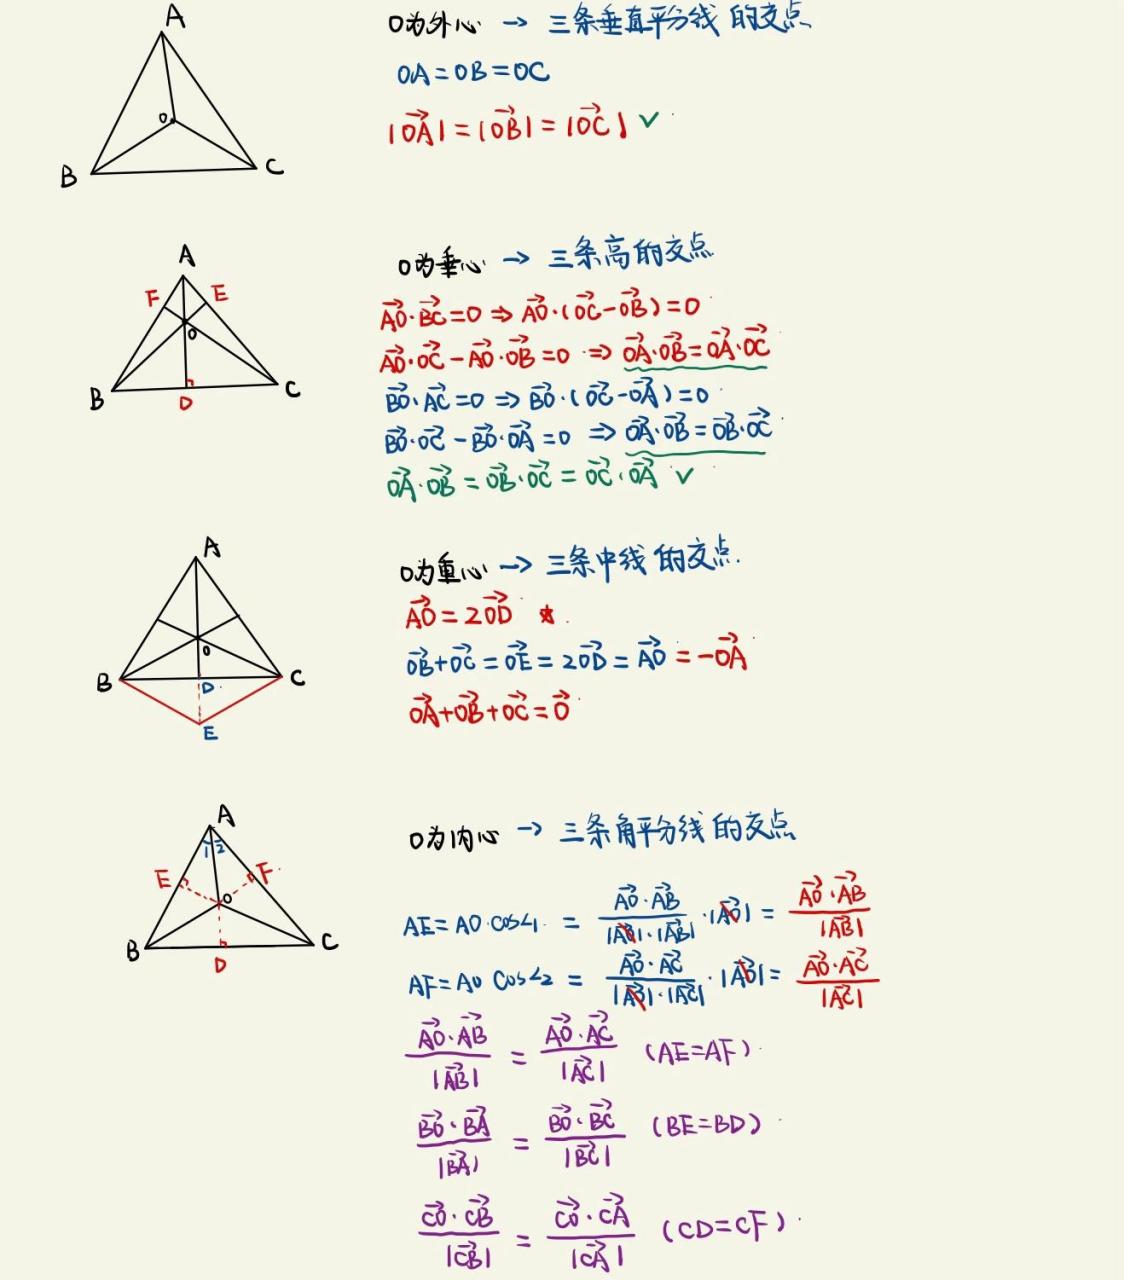 A
O
B
C
O为外心 → 三条垂直平分线的交点
OA=OB=OC
|OA⃗|=|OB⃗|=|OC⃗| ✓
A
F
E
O
B
D
C
O为垂心 → 三条高的交点
AO⃗·BC⃗=0 ⇒ AO⃗·(OC⃗-OB⃗)=0
AO⃗·OC⃗-AO⃗·OB⃗=0 ⇒ OA⃗·OB⃗=OA⃗·OC⃗
BO⃗·AC⃗=0 ⇒ BO⃗·(OC⃗-OA⃗)=0
BO⃗·OC⃗-BO⃗·OA⃗=0 ⇒ OA⃗·OB⃗=OB⃗·OC⃗
OA⃗·OB⃗=OB⃗·OC⃗=OC⃗·OA⃗ ✓
A
O
B
D
C
E
O为重心 → 三条中线的交点.
AO⃗=2OD⃗ ★
OB⃗+OC⃗=OE⃗=2OD⃗=AO⃗=-OA⃗
OA⃗+OB⃗+OC⃗=0⃗
A
1 2
E
F
O
B
D
C
O为内心 → 三条角平分线的交点
AE=AO·cos∠1 = (AO⃗·AB⃗)/(|AO⃗|·|AB⃗|)·|AO⃗| = (AO⃗·AB⃗)/|AB⃗|
AF=AO cos∠2 = (AO⃗·AC⃗)/(|AO⃗|·|AC⃗|)·|AO⃗| = (AO⃗·AC⃗)/|AC⃗|
(AO⃗·AB⃗)/|AB⃗| = (AO⃗·AC⃗)/|AC⃗| (AE=AF)
(BO⃗·BA⃗)/|BA⃗| = (BO⃗·BC⃗)/|BC⃗| (BE=BD)
(CO⃗·CB⃗)/|CB⃗| = (CO⃗·CA⃗)/|CA⃗| (CD=CF)